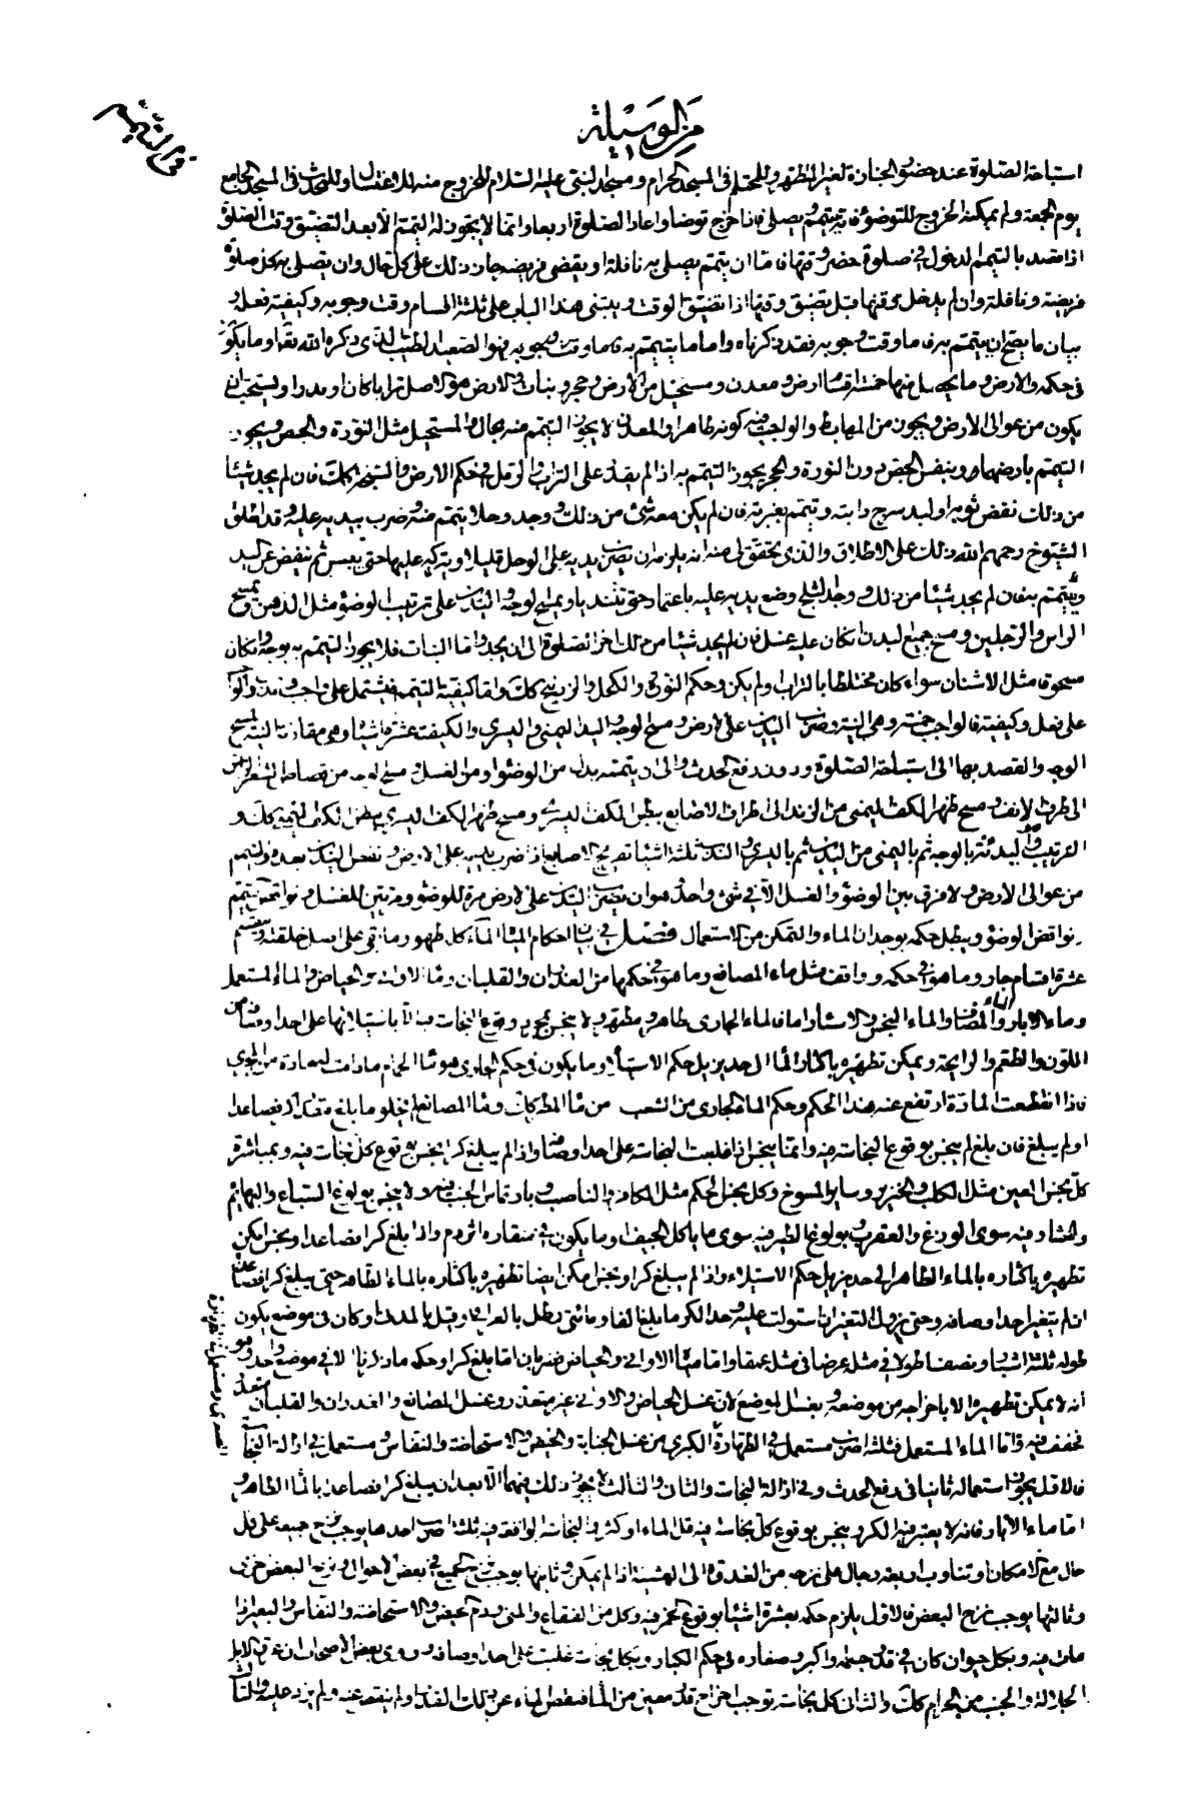 من الوسيلة
في التيمم
استباحة الصلوة عند حضور الجنازة لغير المتطهر وللمحتلم في المسجد الحرام ومسجد النبي عليه السلام للخروج منه للاغتسال وللمحدث في المسجد الجامع
يوم الجمعة ولم يمكنه الخروج للتوضؤ فانه يتيمم ويصلي فاذا خرج توضا واعاد الصلوة اربعا وانما لا يجوز له التيمم الا بعد التضيق وقت الصلوة
اذا قصد بالتيمم الدخول في صلوة حضر وقتها فاما ان يتيمم يصلي به نافلة او يقضي فريضة جاز ذلك على كل حال وان يصلي به كل صلوة
فريضة ونافلة وان لم يدخل وقتها قبل تضيق وقتها اذا تضيق الوقت ويبتني هذا الباب على ثلثة اقسام وقت وجوبه وكيفية فعله و
بيان ما يصح ان يتيمم به فاما وقت وجوبه فقد ذكرناه واما ما يتيمم به فهو الصعيد الطيب الذي ذكره الله تعالى وما يكون
في حكمه والارض وما يحصل منها خمسة اقسام ارض ومعدن ومستحيل من الارض وحجر ونبات فالارض هو الاصل ترابا كان او مدرا ويستحب ان
يكون من عوالي الارض ويجوز من المهابط والواجب فيه كونه طاهرا والمعدن لا يجوز التيمم منه بحال والمستحيل مثل النورة والجص ويجوز
التيمم بارضهما وبنفس الجص دون النورة والحجر يجوز التيمم به اذا لم يقدر على التراب والرمل في حكم الارض والسبخة كذلك فان لم يجد شيئا
من ذلك نفض ثوبه او لبد سرج دابته وتيمم بغبرته فان لم يكن معه شيء من ذلك ووجد وحلا يتيمم منه وضرب بيديه عليه وقد اطلق
الشيوخ رحمهم الله ذلك على الاطلاق والذي تحقق لي منه انه يلزم ان يضرب يديه على الوحل قليلا ويتركه عليها حتى ييبس ثم ينفض عن اليد
ويتيمم به فان لم يجد شيئا من ذلك ووجد الثلج وضع يديه عليه باعتماد حتى تنتديا ويمسح الوجه واليدين على ترتيب الوضوء مثل الدهن ويمسح
الراس والرجلين ومسح جميع البدن ان كان عليه غسل فان لم يجد شيئا من ذلك اخر الصلوة الى ان يجد واما النبات فلا يجوز التيمم به بوجه وان كان
مسحوقا مثل الاشنان سواء كان مختلطا بالتراب ولم يكن وحكم الدقيق والكحل والزرنيخ كذلك واما كيفية التيمم فيشتمل على واجب وندب والواجب
على فعل وكيفية فالواجب خمسة وهي النية وضرب اليدين على الارض ومسح الوجه واليد اليمنى واليسرى والكيفية عشرة اشياء وهي مقارنة النية لمسح
الوجه والقصد بها الى استباحة الصلوة دون رفع الحدث والى ان تيممه بدل من الوضوء او من الغسل ومسح الوجه من قصاص الشعر
الى طرف الانف ومسح ظهر الكف اليمنى من الزند الى اطراف الاصابع ببطن الكف اليسرى ومسح ظهر الكف اليسرى ببطن الكف اليمنى كذلك و
الترتيب والبدئة بالوجه ثم باليمنى من اليدين ثم باليسرى والندب ثلثة اشياء تفريج الاصابع اذا ضرب بيديه على الارض ونفض اليدين بعده والتيمم
من عوالي الارض ولا فرق بين الوضوء والغسل الا في شيء واحد هو ان يضرب اليدين على الارض مرة للوضوء ومرتين للغسل ونواقض التيمم
نواقض الوضوء ويبطل حكمه بوجدان الماء والتمكن من الاستعمال فصل في بيان احكام المياه الماء كله طهور ما بقي على اصل خلقته وينقسم
عشرة اقسام جار وما هو في حكمه وواقف مثل ماء المصانع وما هو في حكمها من الغدران والقلبان وماء الاواني والحياض والماء المستعمل
وماء الابار والماء المضاف والماء النجس والاسئار اما فالماء الجاري طاهر ومطهر ولا ينجس بمجرد وقوع النجاسة فيه الا باستيلائها على احد اوصافه من
اللون والطعم والرايحة ويمكن تطهيره باكثار الماء الى حد يزيل حكم الاستيلاء وما يكون في حكم الجاري هو ماء الحمام ما دامت له مادة من المجرى
فاذا انقطعت المادة ارتفع عنه هذا الحكم وحكم الماء الجاري من الشعب من ماء المطر كذلك وماء المصانع لم يخل وما بلغ مقدار كر فصاعدا
او لم يبلغ فان بلغ لم ينجس بوقوع النجاسة فيه وانما ينجس اذا غلبت النجاسة على احد اوصافه واذا لم يبلغ كرا ينجس بوقوع كل نجاسة فيه وبمباشرة
كل نجس العين مثل الكلب والخنزير وساير المسوخ وكل نجس الحكم مثل الكافر والناصب وبارتماس الجنب فيه ولا ينجس بولوغ السباع والبهائم
والحشار فيه سوى الوزغ والعقرب وبولوغ الطير فيه سوى ما ياكل الجيف او ما يكون في منقاره اثر دم واذا بلغ كرا فصاعدا ونجس امكن
تطهيره باكثاره بالماء الطاهر الى حد يزيل حكم الاستيلاء واذا لم يبلغ كرا ونجس امكن ايضا تطهيره باكثاره بالماء الطاهر حتى يبلغ كرا فصاعدا
ان لم يتغير احد اوصافه وحتى يزول التغير ان استولت عليه وحد الكر ما بلغ الفا ومائتي رطل بالعراقي وقيل بالمدني او كان في موضع يكون
طوله ثلثة اشبار ونصفا طولا في مثله عرضا في مثله عمقا واما مياه الاواني والحياض فضربان اما بلغ كرا وحكمه ما ذكرنا الا في موضع واحد وهو
انه لا يمكن تطهيره الا باخراجه من موضعه وبغسل الموضع لان غسل الحياض والاواني غير متعذر وغسل المصانع والغدران والقلبان متعذر
فخفف فيه واما الماء المستعمل فثلثة اضرب مستعمل في الطهارة الكبرى من غسل الجنابة والحيض والاستحاضة والنفاس ومستعمل في ازالة النجاسة
فالاول يجوز استعماله ثانيا في رفع الحدث وفي ازالة النجاسات والثاني والثالث لا يجوز ذلك فيهما الا بعد ان يبلغ كرا فصاعدا بالماء الطاهر و
اما ماء الابار فانه لا يعتبر فيه الكر وينجس بوقوع كل نجاسة فيه قل الماء او كثر والنجاسة الواقعة فيه ثلثة اضرب احدها يوجب نزح جميعه على كل
حال مع الامكان او تناوب اربعة رجال على نزحه من الغدوة الى العشية اذا لم يمكن وثانيها يوجب نزح الجميع في بعض الاحوال ونزح البعض في اخرى
وثالثها يوجب نزح البعض فالاول يلزم حكمه بعشرة اشياء بوقوع الخمر فيه وكل مسكر والفقاع والمني ودم الحيض والاستحاضة والنفاس والبعير اذا
مات فيه وبكل حيوان كان في قدر جسمه او اكبر وصغاره في حكم الكبار وبكل نجاسة غلبت على احد اوصافه وروى بعض الاصحاب ان عرق الابل
الجلالة والجنب من الحرام كذلك والثاني كل نجاسة توجب اخراج قدر معين من الماء فنقص الماء عن ذلك القدر او لم ينقص عنه ولم يزد عليه والثالث